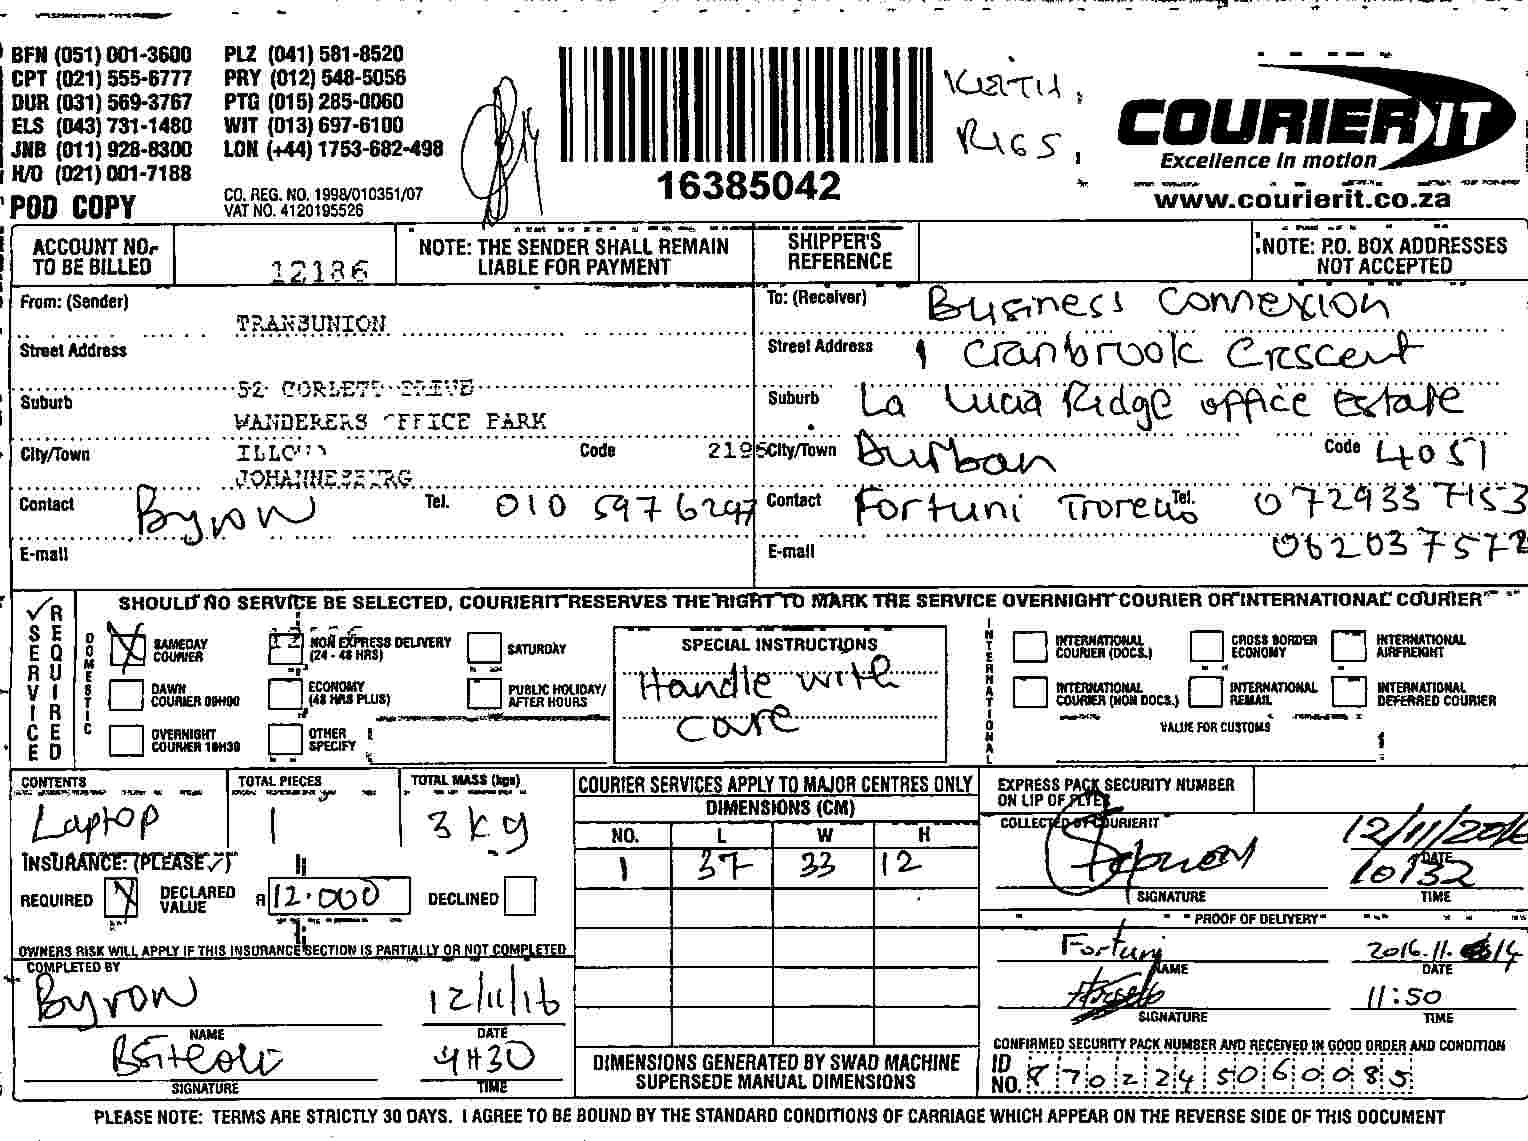 BFN (051) 001-3600 PLZ (041) 581-8520
CPT (021) 555-6777 PRY (012) 548-5056
DUR (031) 569-3767 PTG (015) 285-0060
ELS (043) 731-1480 WIT (013) 697-6100
JNB (011) 928-8300 LON (+44) 1753-682-498
H/O (021) 001-7188
CO. REG. NO. 1998/010351/07
VAT NO. 4120195526
POD COPY
16385042
KEITH
COURIER IT
Excellence in motion
www.courierit.co.za
ACCOUNT NO.
TO BE BILLED
12186
NOTE: THE SENDER SHALL REMAIN
LIABLE FOR PAYMENT
SHIPPER'S
REFERENCE
NOTE: P.O. BOX ADDRESSES
NOT ACCEPTED
From: (Sender)
TRANSUNION
Street Address
52 CORLETT DRIVE
Suburb
WANDERERS OFFICE PARK
City/Town ILLOVO Code 2196
JOHANNESBURG
Contact Byron Tel. 010 597 6297
E-mail
To: (Receiver) Business Connexion
Street Address 1 Cranbrook Crescent
Suburb La Lucia Ridge office estate
City/Town Durban Code 4051
Contact Fortuni Tel. 0729337153
E-mail 062037572
SERVICE REQUIRED
SHOULD NO SERVICE BE SELECTED, COURIERIT RESERVES THE RIGHT TO MARK THE SERVICE OVERNIGHT COURIER OR INTERNATIONAL COURIER
DOMESTIC
SAMEDAY
COURIER
NON EXPRESS DELIVERY
(24 - 48 HRS)
SATURDAY
DAWN
COURIER 09H00
ECONOMY
(48 HRS PLUS)
PUBLIC HOLIDAY/
AFTER HOURS
OVERNIGHT
COURIER 10H30
OTHER
SPECIFY
SPECIAL INSTRUCTIONS
Handle with
care
INTERNATIONAL
INTERNATIONAL
COURIER (DOCS.)
CROSS BORDER
ECONOMY
INTERNATIONAL
AIRFREIGHT
INTERNATIONAL
COURIER (NON DOCS.)
INTERNATIONAL
REMAIL
INTERNATIONAL
DEFERRED COURIER
VALUE FOR CUSTOMS
CONTENTS TOTAL PIECES TOTAL MASS (kgs)
Laptop 1 3 kg
INSURANCE: (PLEASE ✓)
REQUIRED DECLARED
VALUE R 12.000 DECLINED
OWNERS RISK WILL APPLY IF THIS INSURANCE SECTION IS PARTIALLY OR NOT COMPLETED
COMPLETED BY
Byron 12/11/16
NAME DATE
9H30
SIGNATURE TIME
COURIER SERVICES APPLY TO MAJOR CENTRES ONLY
DIMENSIONS (CM)
NO. L W H
1 37 33 12
DIMENSIONS GENERATED BY SWAD MACHINE
SUPERSEDE MANUAL DIMENSIONS
EXPRESS PACK SECURITY NUMBER
ON LIP OF FLYER
COLLECTED BY COURIERIT
12/11/2016
DATE
10:32
SIGNATURE TIME
PROOF OF DELIVERY
Fortuni 2016.11.14
NAME DATE
11:50
SIGNATURE TIME
CONFIRMED SECURITY PACK NUMBER AND RECEIVED IN GOOD ORDER AND CONDITION
ID
NO. 8702245060085
PLEASE NOTE: TERMS ARE STRICTLY 30 DAYS. I AGREE TO BE BOUND BY THE STANDARD CONDITIONS OF CARRIAGE WHICH APPEAR ON THE REVERSE SIDE OF THIS DOCUMENT